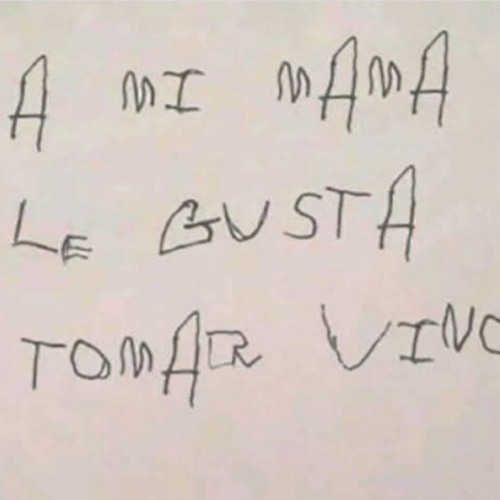 A MI MAMA
LE GUSTA
TOMAR VINO